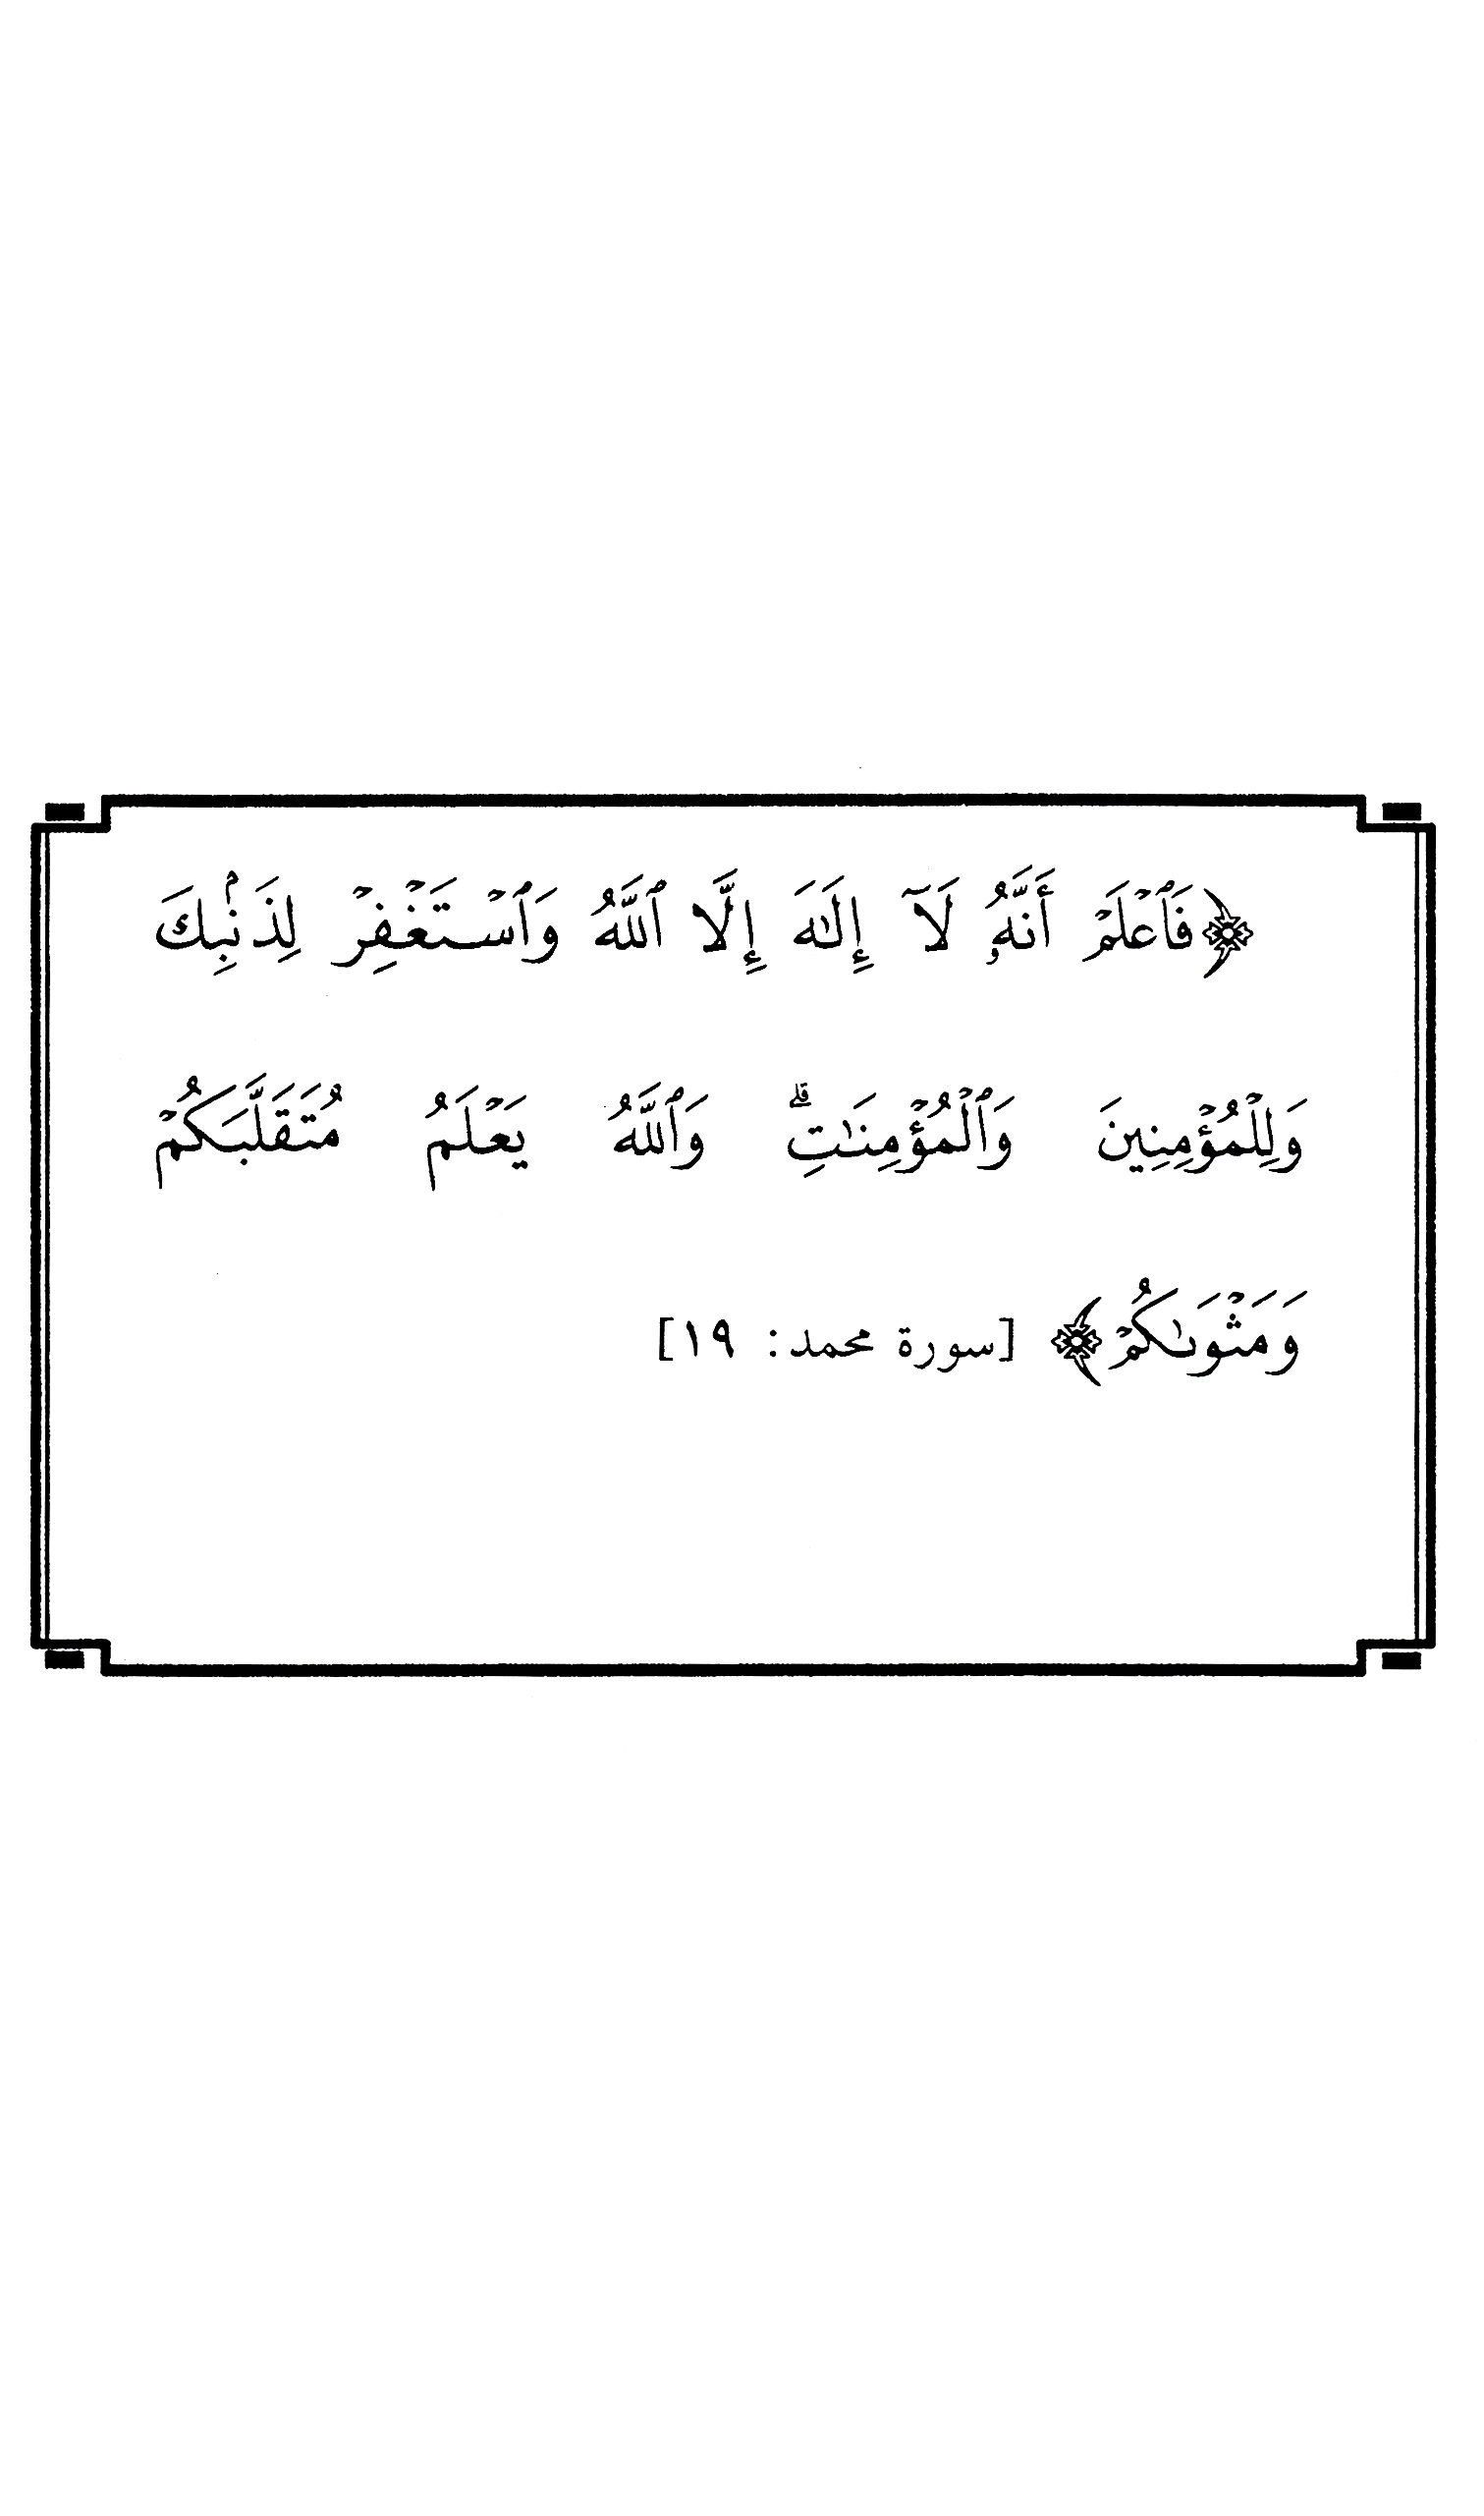 ﴿فَٱعۡلَمۡ أَنَّهُۥ لَآ إِلَٰهَ إِلَّا ٱللَّهُ وَٱسۡتَغۡفِرۡ لِذَنۢبِكَ
وَلِلۡمُؤۡمِنِينَ وَٱلۡمُؤۡمِنَٰتِۗ وَٱللَّهُ يَعۡلَمُ مُتَقَلَّبَكُمۡ
وَمَثۡوَىٰكُمۡ﴾ [سورة محمد: ١٩]